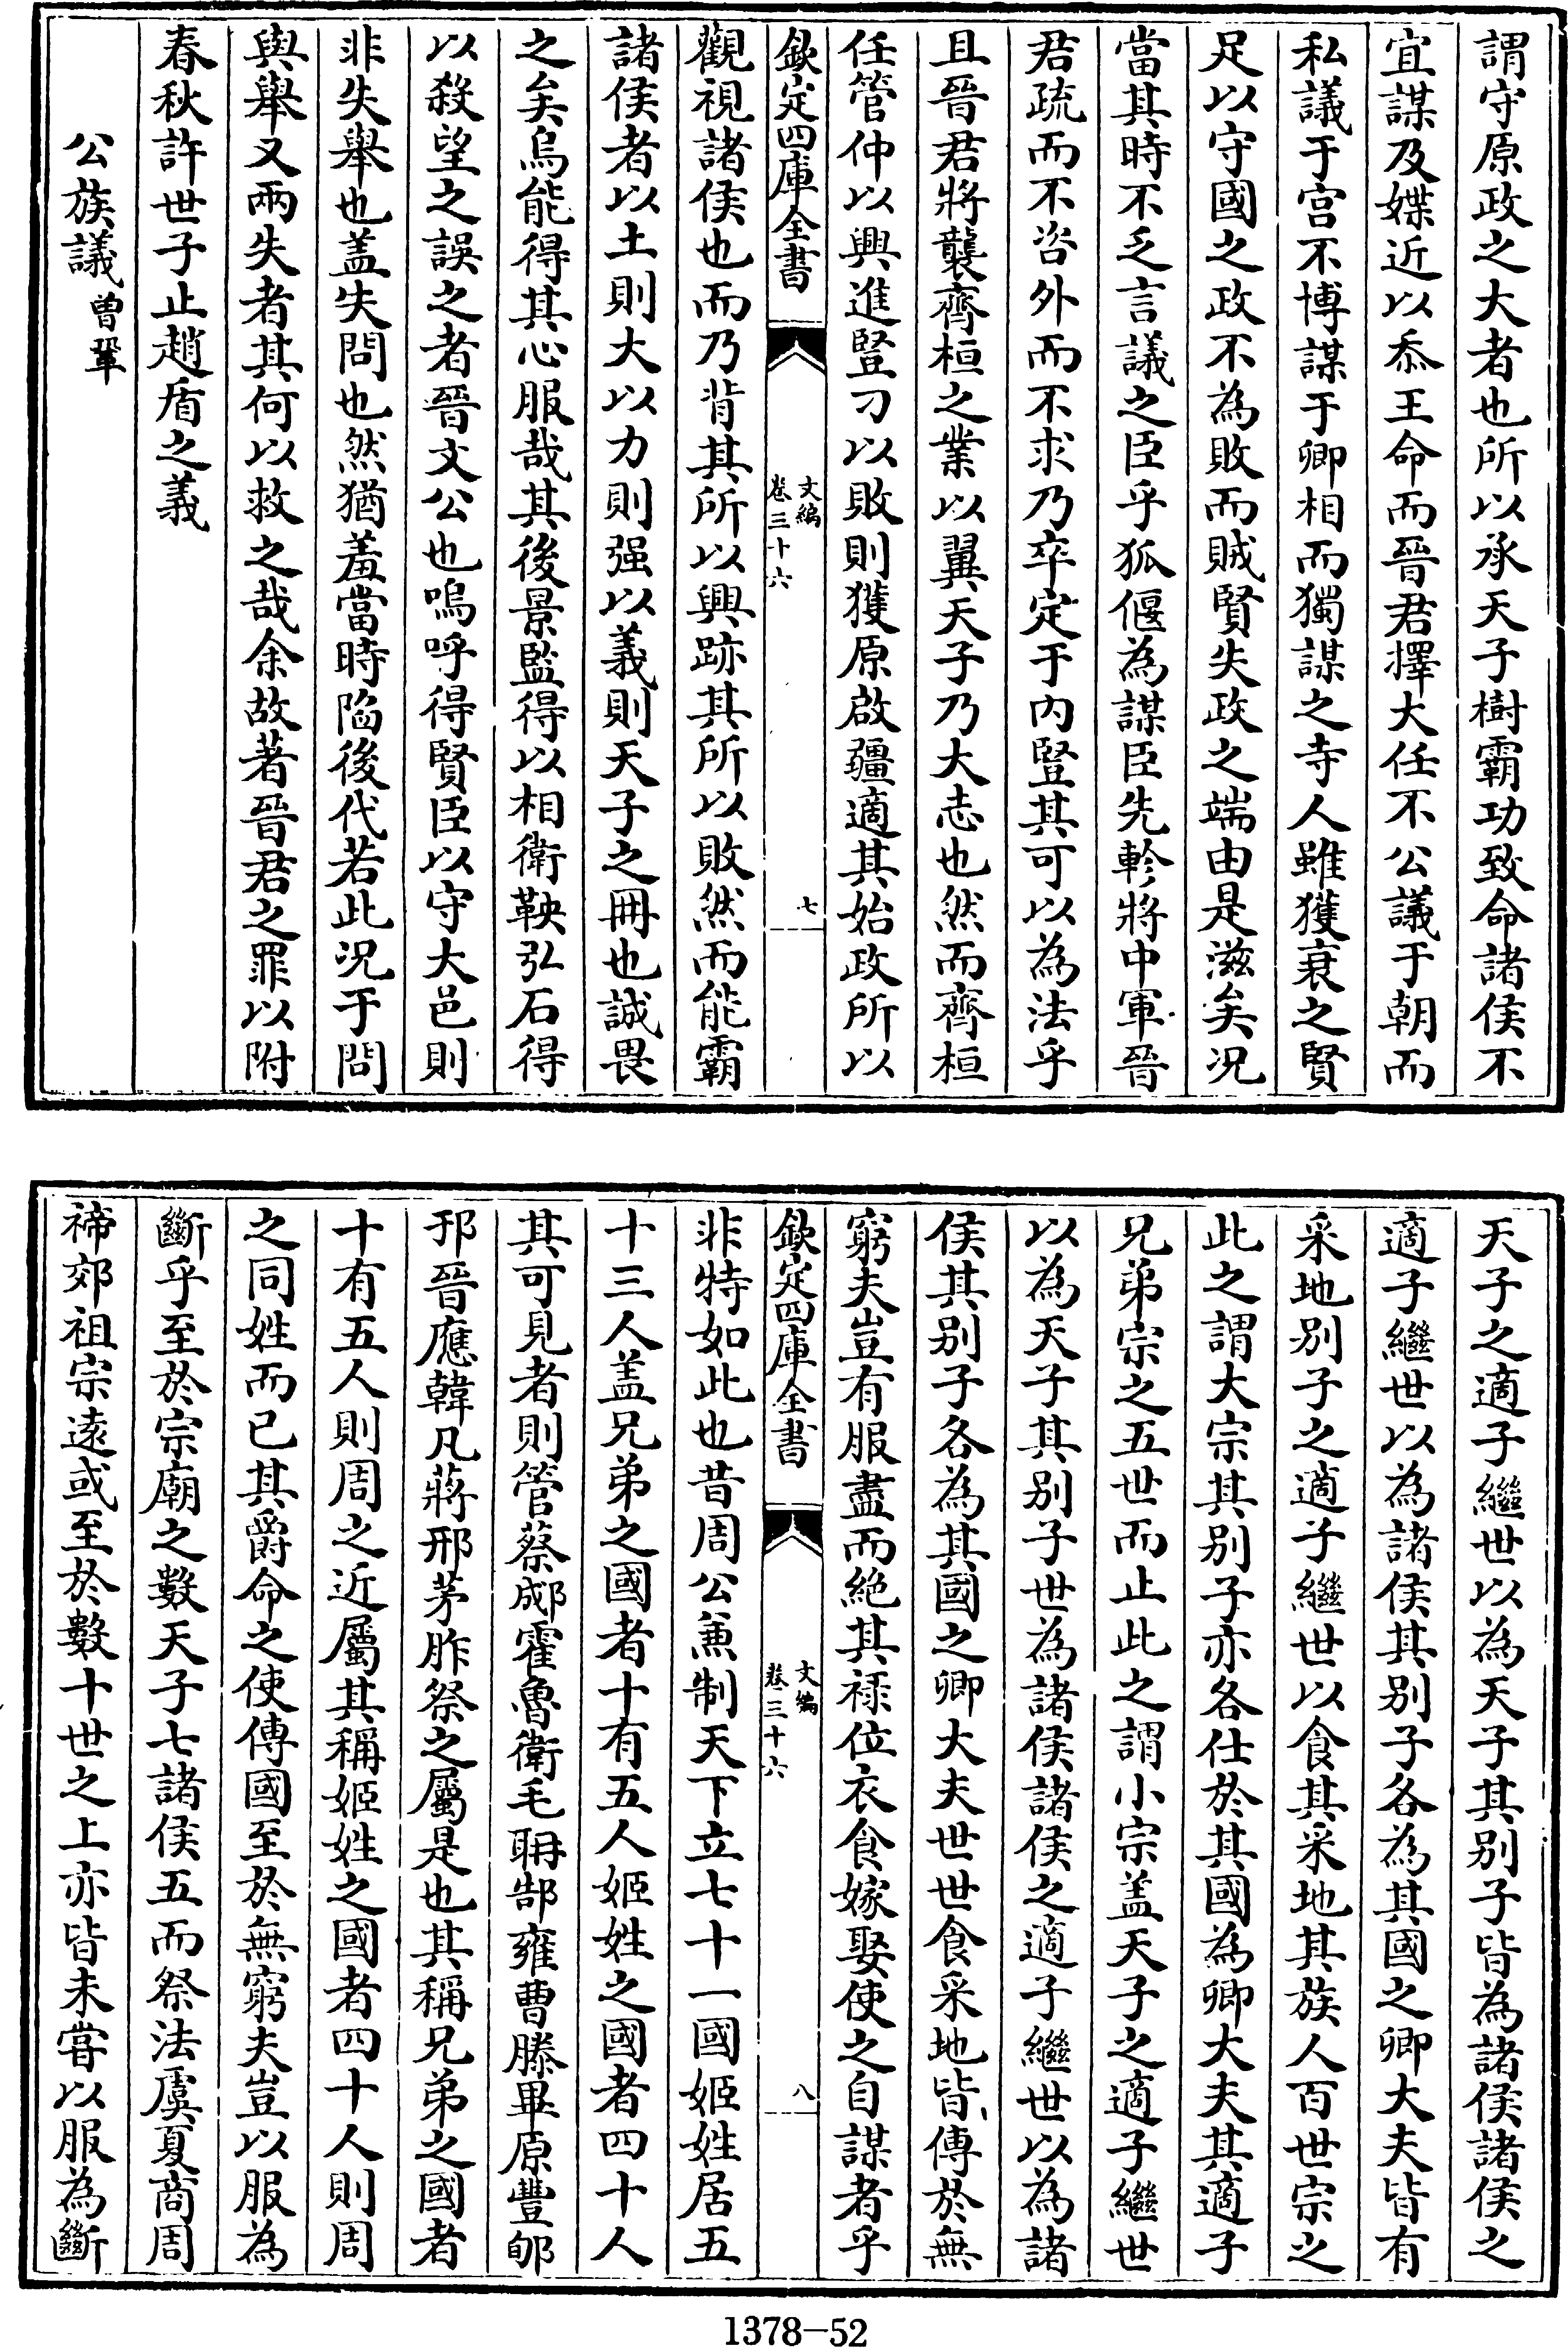 謂守原政之大者也所以承天子樹霸功致命諸侯不
宜謀及媟近以忝王命而晉君擇大任不公議于朝而
私議于宫不博謀于卿相而獨謀之寺人雖獲衰之賢
足以守國之政不為敗而賊賢失政之端由是滋矣况
當其時不乏言議之臣乎狐偃為謀臣先軫將中軍晉
君疏而不咨外而不求乃卒定于内豎其可以為法乎
且晉君將襲齊桓之業以翼天子乃大志也然而齊桓
任管仲以興進豎刁以敗則獲原啟疆適其始政所以
欽定四庫全書
文編
卷三十六
七
觀視諸侯也而乃背其所以興跡其所以敗然而能霸
諸侯者以土則大以力則强以義則天子之冊也誠畏
之矣烏能得其心服哉其後景監得以相衛鞅弘石得
以殺望之誤之者晉文公也嗚呼得賢臣以守大邑則
非失舉也盖失問也然猶羞當時陷後代若此况于問
與舉又兩失者其何以救之哉余故著晉君之罪以附
春秋許世子止趙盾之義
公族議 曾鞏
天子之適子繼世以為天子其别子皆為諸侯諸侯之
適子繼世以為諸侯其别子各為其國之卿大夫皆有
采地别子之適子繼世以食其采地其族人百世宗之
此之謂大宗其别子亦各仕於其國為卿大夫其適子
兄弟宗之五世而止此之謂小宗盖天子之適子繼世
以為天子其别子世為諸侯諸侯之適子繼世以為諸
侯其别子各為其國之卿大夫世世食采地皆傳於無
窮夫豈有服盡而絶其禄位衣食嫁娶使之自謀者乎
欽定四庫全書
文編
卷三十六
八
非特如此也昔周公兼制天下立七十一國姬姓居五
十三人盖兄弟之國者十有五人姬姓之國者四十人
其可見者則管蔡郕霍魯衛毛聃郜雍曹滕畢原豐郇
邘晉應韓凡蔣邢茅胙祭之屬是也其稱兄弟之國者
十有五人則周之近屬其稱姬姓之國者四十人則周
之同姓而已其爵命之使傳國至於無窮夫豈以服為
斷乎至於宗廟之數天子七諸侯五而祭法虞夏商周
禘郊祖宗遠或至於數十世之上亦皆未嘗以服為斷
1378—52